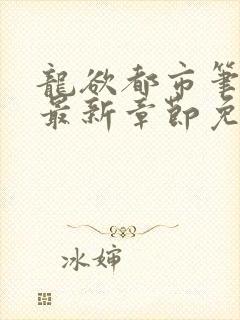 龍欲都市筆
最新章節免
冰婶